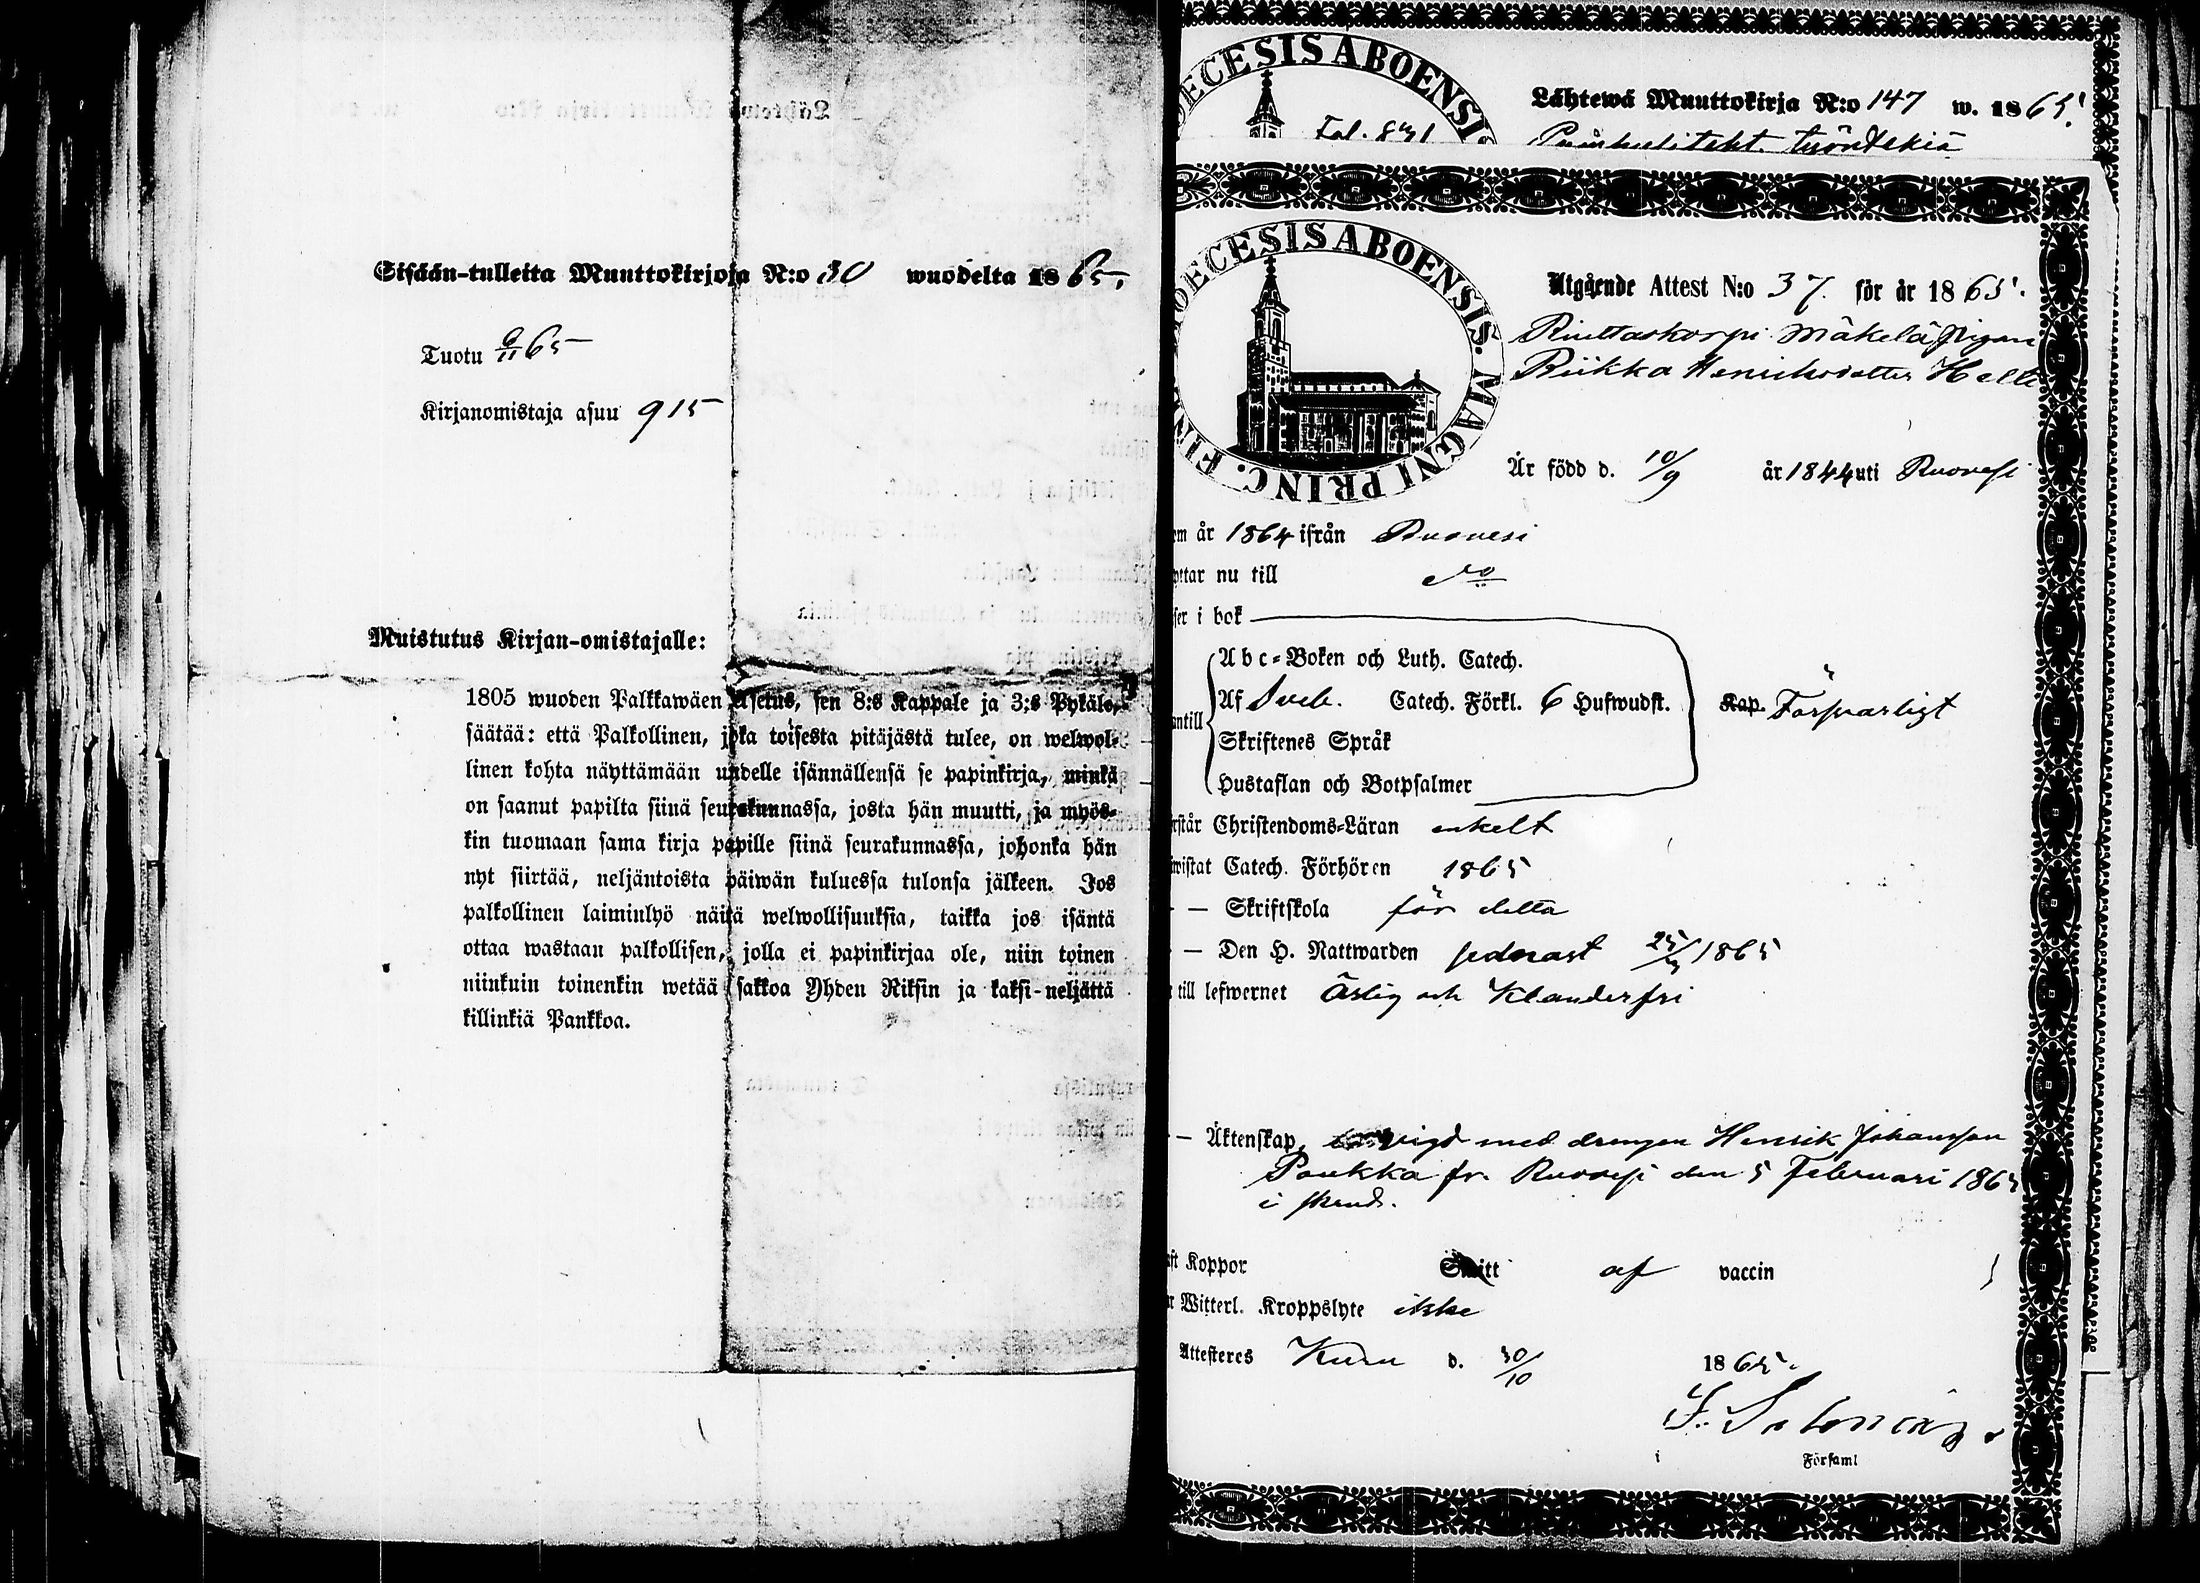 Sisään-tulleita Muuttokirjoja N:o 30 wuodelta 1865.
Tuotu 9/11 65
Kirjanomistaja asuu 915
Muistutus Kirjan-omistajalle:
1805 wuoden Palkkawäen Asetus, sen 8:s Kappale ja 3:s Pykälä,
säätää: että Palkollinen, joka toisesta pitäjästä tulee, on welwol-
linen kohta näyttämään uudelle isännällensä se papinkirja, minkä
on saanut papilta siinä seurakunnassa, josta hän muutti, ja myös-
kin tuomaan sama kirja papille siinä seurakunnassa, johonka hän
nyt siirtää, neljäntoista päiwän kuluessa tulonsa jälkeen. Jos
palkollinen laiminlyö näitä welwollisuuksia, taikka jos isäntä
ottaa wastaan palkollisen, jolla ei papinkirjaa ole, niin toinen
niinkuin toinenkin wetää sakkoa Yhden Riksin ja kaksi-neljättä
killinkiä Pankkoa.
DECESIS ABOENSIS
Lähtewä Muuttokirja N:o 147 w. 1865.
Fol. 831
työntekiä
DECESIS ABOENSIS. MAGNI PRINC. FIN
Utgående Attest N:o 37. för år 1865.
Riuttaskorpi Mäkelä Pigan
Riikka Henriksdotter
Är född d. 10/9 år 1844 uti Ruovesi
em år 1864 ifrån Ruovesi
yttar nu till do
ser i bok
Abc-Boken och Luth. Catech.
antill Af Sveb. Catech. Förkl. 6 Hufwudst. Kap. Försvarligt
Skriftenes Språk
Hustaflan och Botpsalmer
rstår Christendoms-Läran enkelt
wistat Catech. Förhören 1865
— Skriftskola för detta
— Den H. Nattwarden sednast 25/3 1865
till lefwernet Ärlig och Klanderfri
— Äktenskap, vigd med drengen Henrik Johansson
Poukka fr. Ruovesi den 5 Februari 1865
i
ft Koppor Snitt af vaccin
r Witterl. Kroppslyte ikke
Attesteres Kuru d. 30/10 1865.
Församl